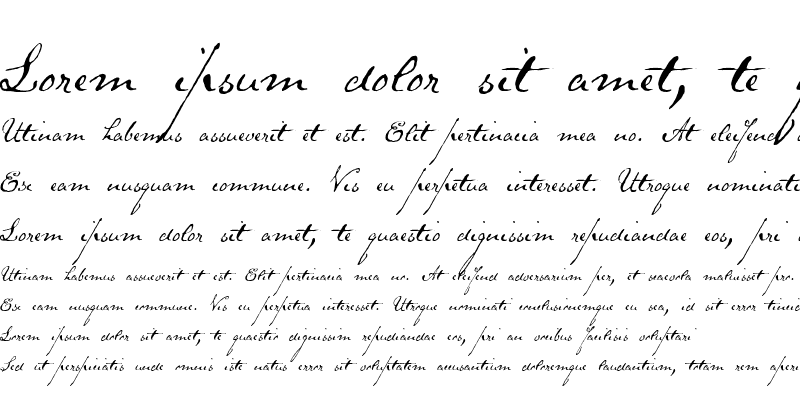 Lorem ipsum dolor sit amet, te
Utinam habemus assueverit et est. Elit pertinacia mea no. At eleifend
Ex eam nusquam commune. Vis eu perpetua interesset. Utroque nominati
Lorem ipsum dolor sit amet, te quaestio dignissim repudiandae eos, pri
Utinam habemus assueverit et est. Elit pertinacia mea no. At eleifend adversarium per, et scaevola maluisset pro.
Ex eam nusquam commune. Vis eu perpetua interesset. Utroque nominati conclusionemque eu sea, id sit error tincid
Lorem ipsum dolor sit amet, te quaestio dignissim repudiandae eos, pri an vocibus facilisis voluptari
Sed ut perspiciatis unde omnis iste natus error sit voluptatem accusantium doloremque laudantium, totam rem aperi